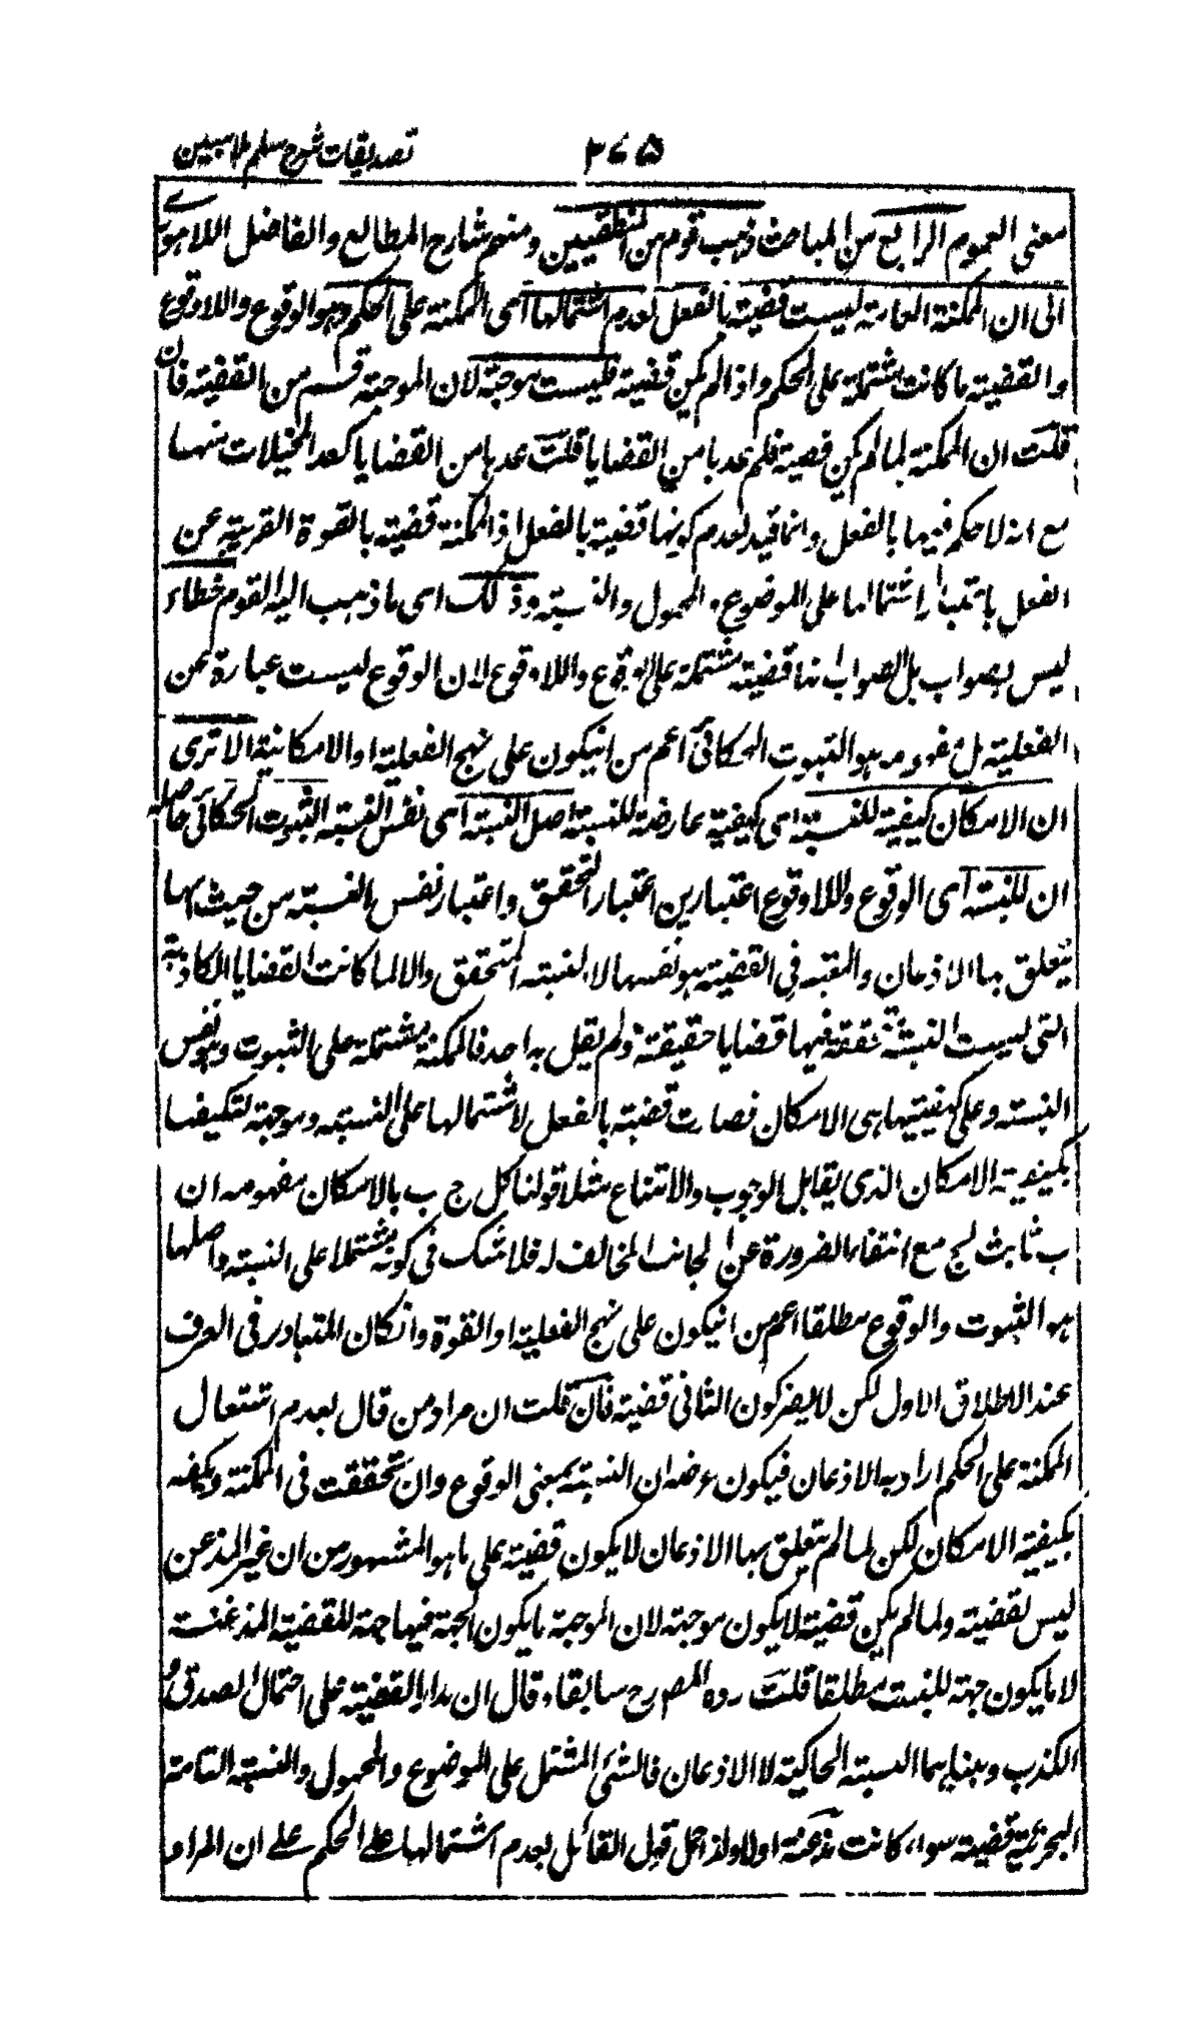 تصدیقات شرح سلم ملا مبین ٣٧۵
معنی العموم الرابع من المباحث ذهب قوم من المنطقيين ومنهم شارح المطالع والفاضل اللاهوری
الى ان الممكنة العامة ليست قضية بالفعل لعدم اشتمالها ای الممكنة على الحكم وهو الوقوع واللاوقوع
والقضية ما كانت مشتملة على الحكم واذا لم يكن قضية فليست موجهة لان الموجهة قسم من القضية فان
قلت ان الممكنة لما لم يكن قضية فلم عدها من القضايا قلت عدها من القضايا كعد المخيلات منها
مع انه لا حكم فيها بالفعل وانما قيد لعدم كونها قضية بالفعل اذ الممكنة قضية بالقوة القريبة عن
الفعل باعتبار اشتمالها على الموضوع والمحمول والنسبة وذلك ای ما ذهب اليه القوم خطاء
ليس بصواب بل الصواب انها قضية مشتملة على الوقوع واللاوقوع لان الوقوع ليست عبارة عن
الفعلية بل مفهومه هو الثبوت الحكائی اعم من انيكون على نهج الفعلية او الامكانية الا ترى
ان الامكان كيفية للنسبة ای كيفية عارضة للنسبة اصل النسبة ای نفس النسبة الثبوت الحكائی حاصله
ان للنسبة ای الوقوع واللاوقوع اعتبارين اعتبار التحقق واعتبار نفس النسبة من حيث انها
يتعلق بها الاذعان والمعتبر فی القضية هو نفسها لا النسبة المتحقق والا لما كانت القضايا الكاذبة
التی ليست النسبة متحققة فيها قضايا حقيقة ولم يقل به احد فالممكنة مشتملة على الثبوت وهو نفس
النسبة وعلى كيفيتها هی الامكان فصارت قضية بالفعل لاشتمالها على النسبة وموجهة لتكيفها
بكيفية الامكان الذی يقابل الوجوب والامتناع مثلا قولنا كل ج ب بالامكان مفهومه ان
ب ثابت لج مع انتفاء الضرورة عن الجانب المخالف له فلا شك فی كونه مشتملا على النسبة واصلها
هو الثبوت والوقوع مطلقا اعم من انيكون على نهج الفعلية او القوة وانكان المتبادر فی العرف
عند الاطلاق الاول لكن لا يضر كون الثانی قضية فان قلت ان مراد من قال بعدم اشتمال
الممكنة على الحكم اراد به الاذعان فيكون غرضه ان النسبة بمعنى الوقوع وان تحققت فی الممكنة وتكيفه
بكيفية الامكان لكن لما لم يتعلق بها الاذعان لا يكون قضية على ما هو المشهور من ان غير المذعن
ليس بقضية ولما لم يكن قضية لا يكون موجهة لان الموجهة ما يكون الجهة فيها جهة للقضية المذعنة
لا ما يكون جهة للنسبة مطلقا قلت رده المصرح سابقا وقال ان مدار القضية على احتمال الصدق و
الكذب ومبناهما النسبة الحاكية لا الاذعان فالشئ المشتمل على الموضوع والمحمول والنسبة التامة
الخبرية قضية سواء كانت مذعنة اولا ولذا حمل قول القائل بعدم اشتمالها على الحكم على ان المراد